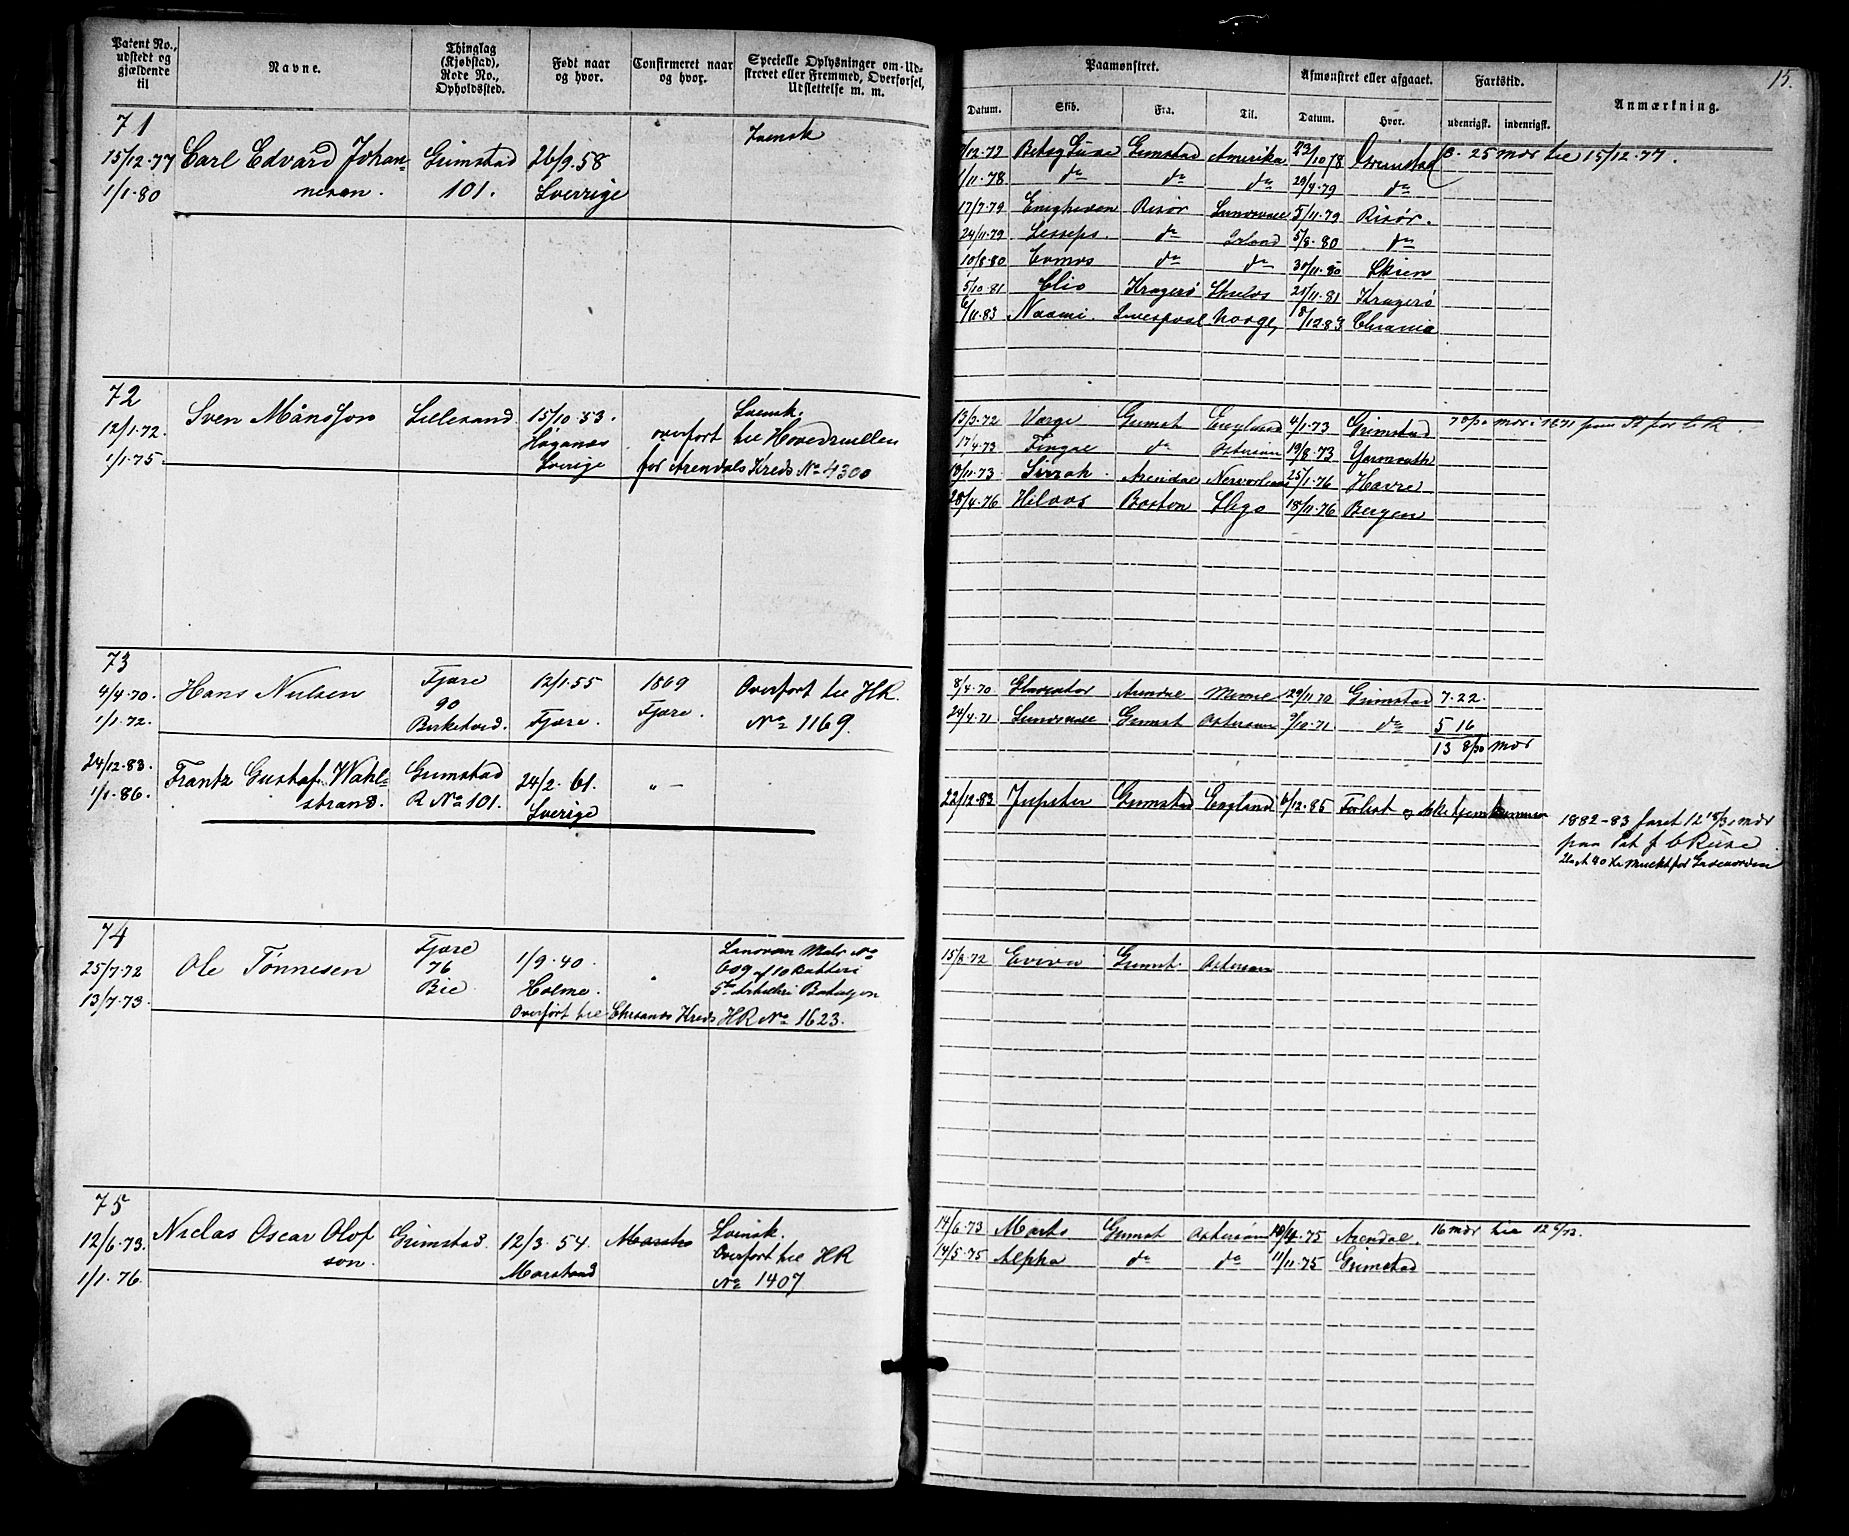 Patent No., udstedt og gjældende til
Navne.
Thinglag (Kjøbstad), Rode No., Opholdssted.
Født naar og hvor.
Confirmeret naar og hvor.
Specielle Oplysninger om Udskrevet eller Fremmed, Overførsel, Udslettelse m. m.
Paamønstret.
Afmønstret eller afgaaet.
Fartstid.
Anmærkning.
15.
Datum.
Skib.
Fra.
Til.
Datum.
Hvor.
udenrigsk.
indenrigsk.
71
15/12.77 Carl Edvard Johan- Grimstad 26/9.58
Svensk
1/1.80 nesen. 101. Sverrige
/12.77 Grimstad Amerika 23/10 78 Grimstad 25 mdr til 15/12.77.
1/11.78 do do do 29/4.79 do
17/7.79 Risør 5/11.79 Risør.
24/11.79 Lesseps. do 5/8.80 do
10/8.80 do do 30/11.80 Skien
5/10.81 Clio Kragerø 25/11.81 Kragerø
6/11.83 Naomi. Norge, 18/12 83
72
12/1.72. Sven Månsson Lillesand 15/10.53.
Svensk.
1/1.75. Höganäs Sverige
overført til Hovedrullen
for Arendals Kreds No 4300
13/3.72 Varge Grimst England 4/1.73 Grimstad
17/4.73 Fingal do Østersøen 19/8.73 Yarmouth
18/11.73 Arendal 25/1.76 Havre
28/4.76 Boston Sligo 18/11.76 Bergen
73
4/4.70. Hans Nielsen Fjære 12/1.55 1869 Overført til HR.
1/1.72. 90 Birketved. Fjære. Fjære. No 1169.
8/4.70 Gladiator Arendal 29/11.70 Grimstad 7.22.
24/4.71 Grimst Østersøen 9/10.71 do 5 16
13 8/30 mdr
24/12.83. Frantz Gustaf Wahl- Grimstad 24/2.61. „ —
1/1.86. strand. R No 101. Sverige
22/12.83 Jupiter Grimstad England 6/12.85 Forlist og ikke hjemkommen
1882-83 faret 12 18/30 mdr
paa Pat f
74
25/7.72 Ole Tønnesen Fjære 1/9.40. „
13/7.73. 76 Bie Holme.
609 af 10 Batteri
Overført til Chrsands Kreds HR No 1623.
15/3.72 Eviva Grimst. Østersøen
75
12/6.73. Niclas Oscar Olof Grimstad. 12/3.54. Svensk.
1/1.76. son. Marstrand
Overført til HR
No 1407.
14/6.73 Grimst Østersøen 75 Arendal. 16 mdr til
14/5.75 Alpha do do 11/11.75 Grimstad